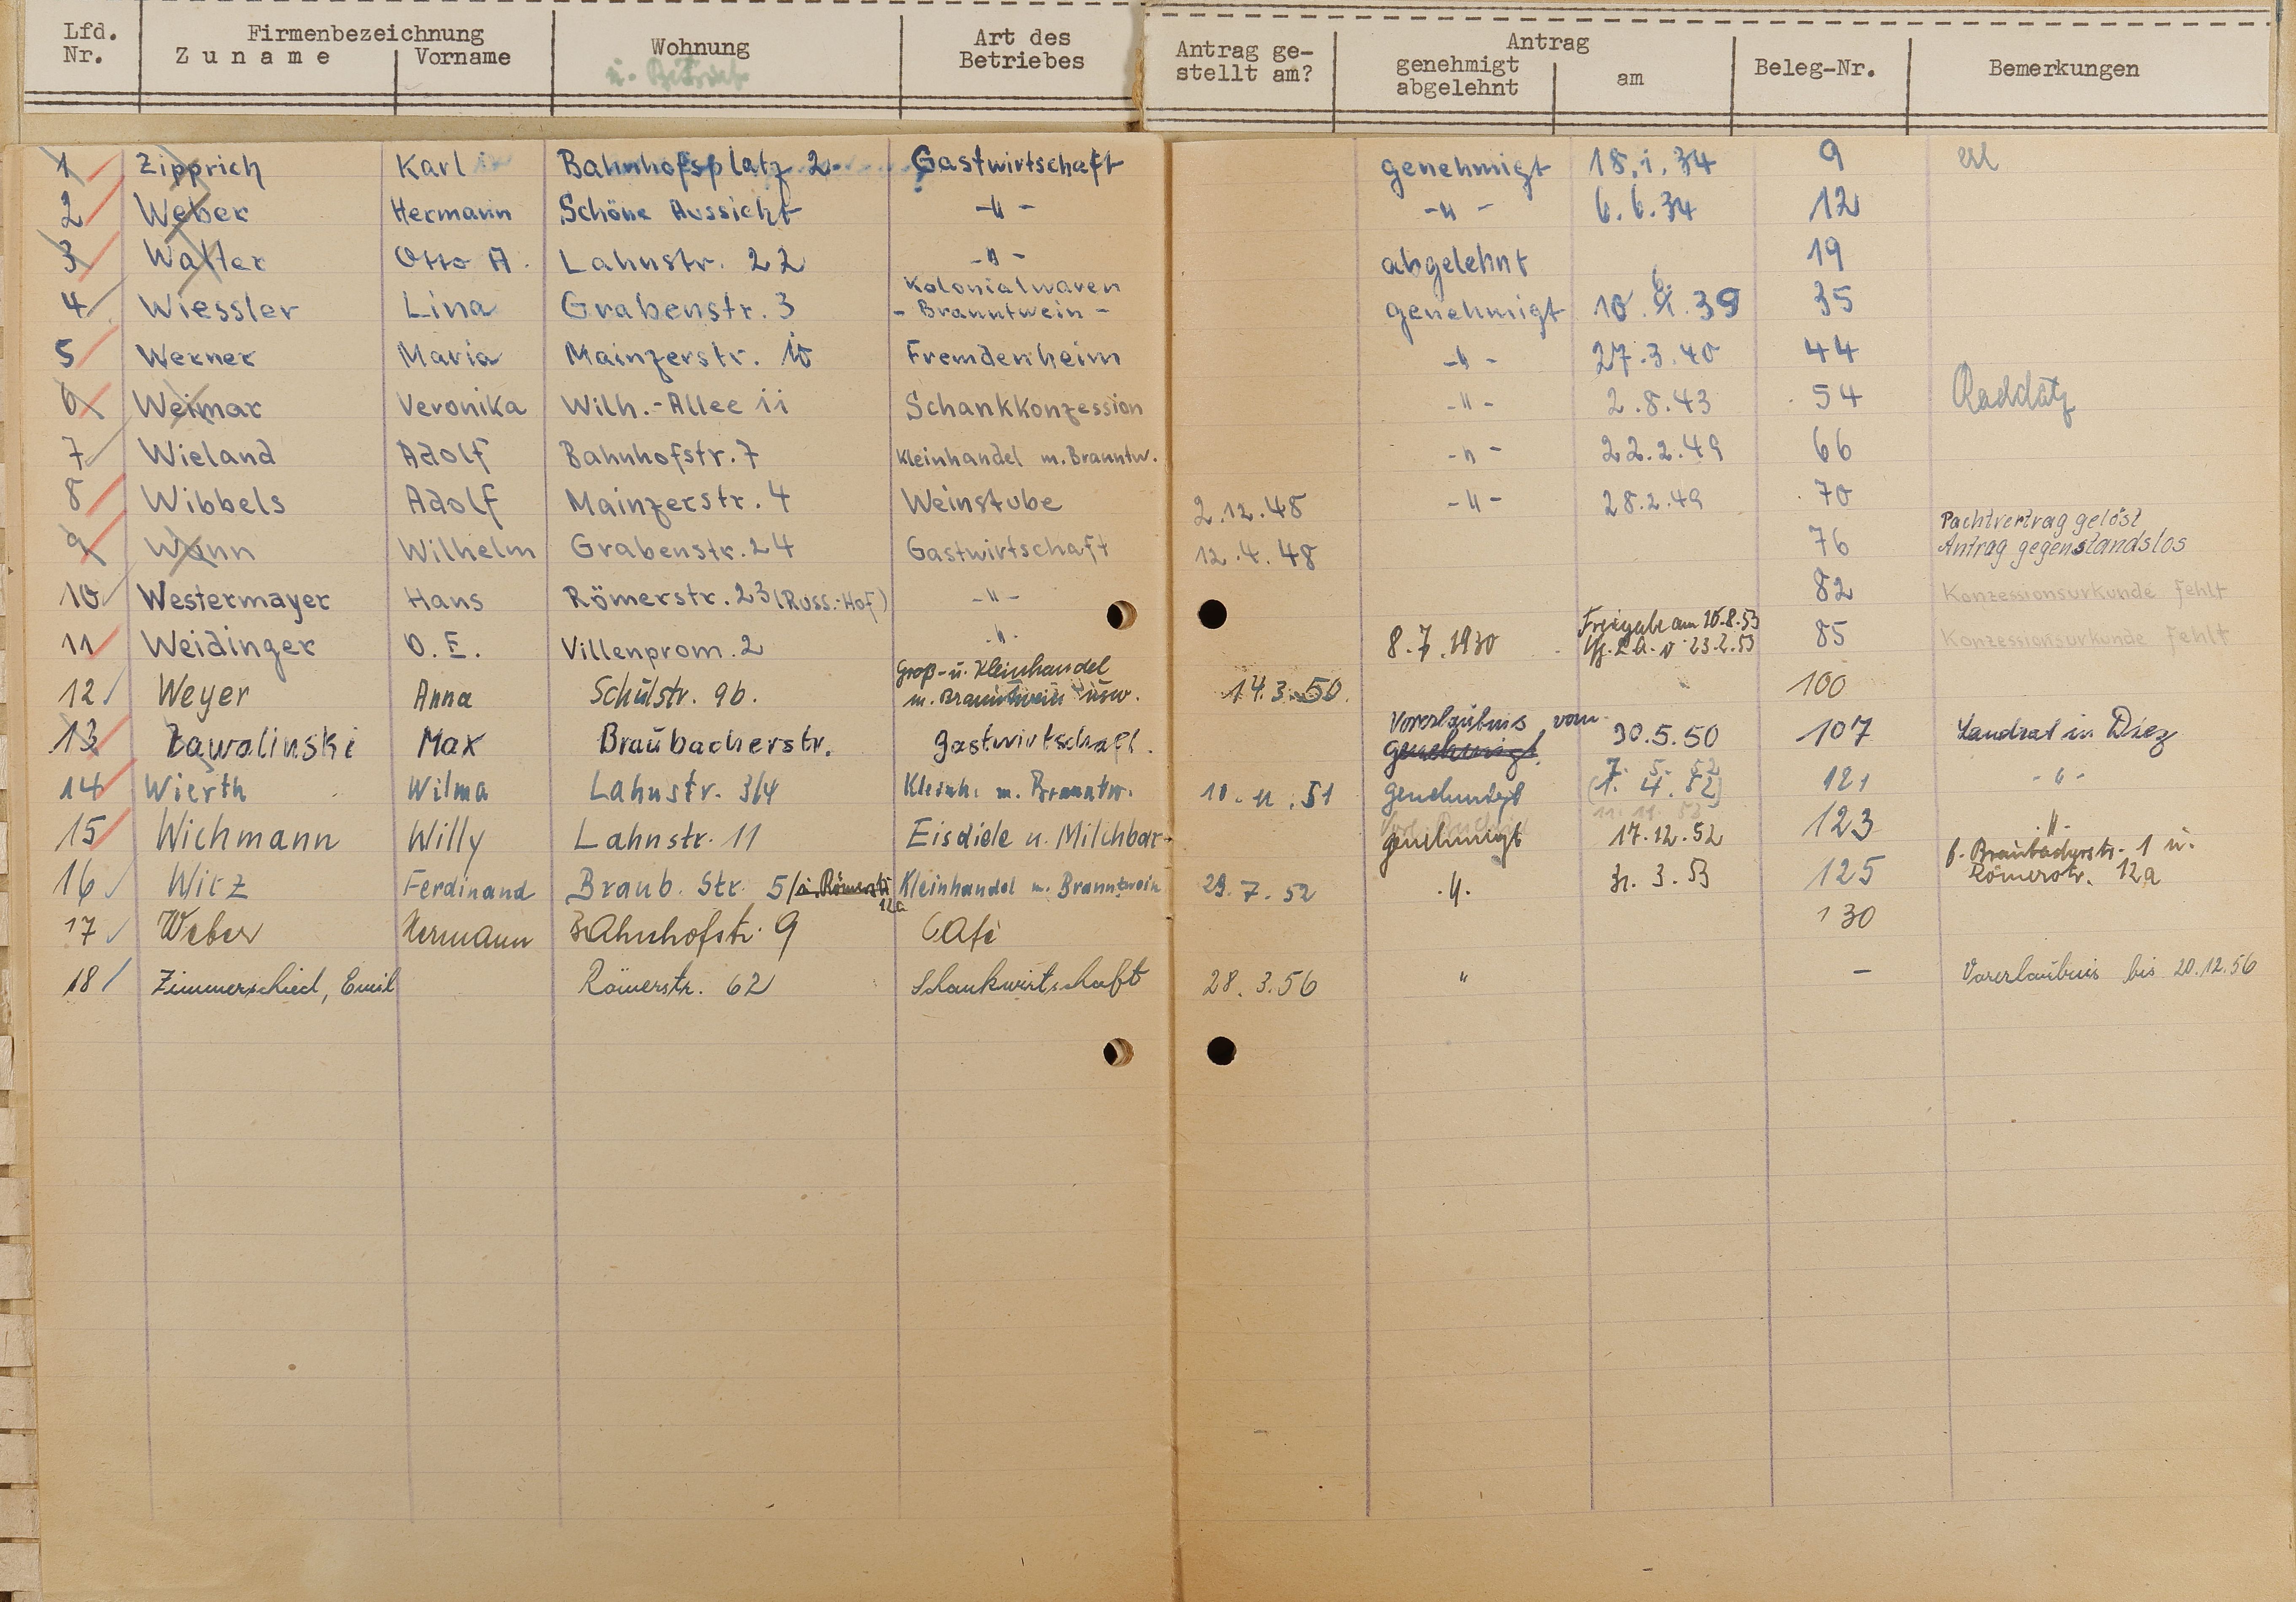 Lfd. Nr. Firmenbezeichnung Zuname Vorname Wohnung Art des Betriebes Antrag gestellt am? Antrag genehmigt abgelehnt am Beleg-Nr. Bemerkungen
1 Zipprich Karl Bahnhofsplatz 2 Gastwirtschaft genehmigt 18.1.34 9 erl
2 Weber Hermann Schöne Aussicht -"- -"- 6.6.34 12
3 Walter Otto A. Lahnstr. 22 -"- abgelehnt 19
4 Wiessler Lina Grabenstr. 3 Kolonialwaren - Branntwein - genehmigt 10.6.39 35
5 Werner Maria Mainzerstr. 10 Fremdenheim -"- 27.3.40 44
6 Weimar Veronika Wilh.-Allee 11 Schankkonzession -"- 2.8.43 54 Raddatz
7 Wieland Adolf Bahnhofstr. 7 Kleinhandel m. Branntw. -"- 22.2.49 66
8 Wibbels Adolf Mainzerstr. 4 Weinstube 2.12.48 -"- 28.2.49 70
9 Wann Wilhelm Grabenstr. 24 Gastwirtschaft 12.4.48 76 Pachtvertrag gelöst Antrag gegenstandslos
10 Westermayer Hans Römerstr. 23 (Russ.-Hof) -"- 82 Konzessionsurkunde fehlt
11 Weidinger O. E. Villenprom. 2 -"- 8.7.1930 Freigabe am 10.8.53 23.2.53 85 Konzessionsurkunde fehlt
12 Weyer Anna Schulstr. 9b. Groß- u. Kleinhandel m. Branntwein usw. 14.3.50. 100
13 Zawalinski Max Braubacherstr. Gastwirtschaft. Vorerlaubnis vom genehmigt 30.5.50 107 Landrat in Diez
14 Wierth Wilma Lahnstr. 3/4 Kleinh. m. Branntw. 10.11.51 genehmigt 7. 5. 52 (1. 4. 52) 121 -"-
15 Wichmann Willy Lahnstr. 11 Eisdiele u. Milchbar genehmigt 11.11.52 17.12.52 123 -"-
16 Witz Ferdinand Braub. Str. 5/ u. Römerstr. 12a Kleinhandel m. Branntwein 29.7.52 -"- 31.3.53 125 f. Braubacherstr. 1 u. Römerstr. 12a
17 Weber Hermann Bahnhofstr. 9 Café 130
18 Zimmerschied, Emil Römerstr. 62 Schankwirtschaft 28.3.56 " - Vorerlaubnis bis 20.12.56